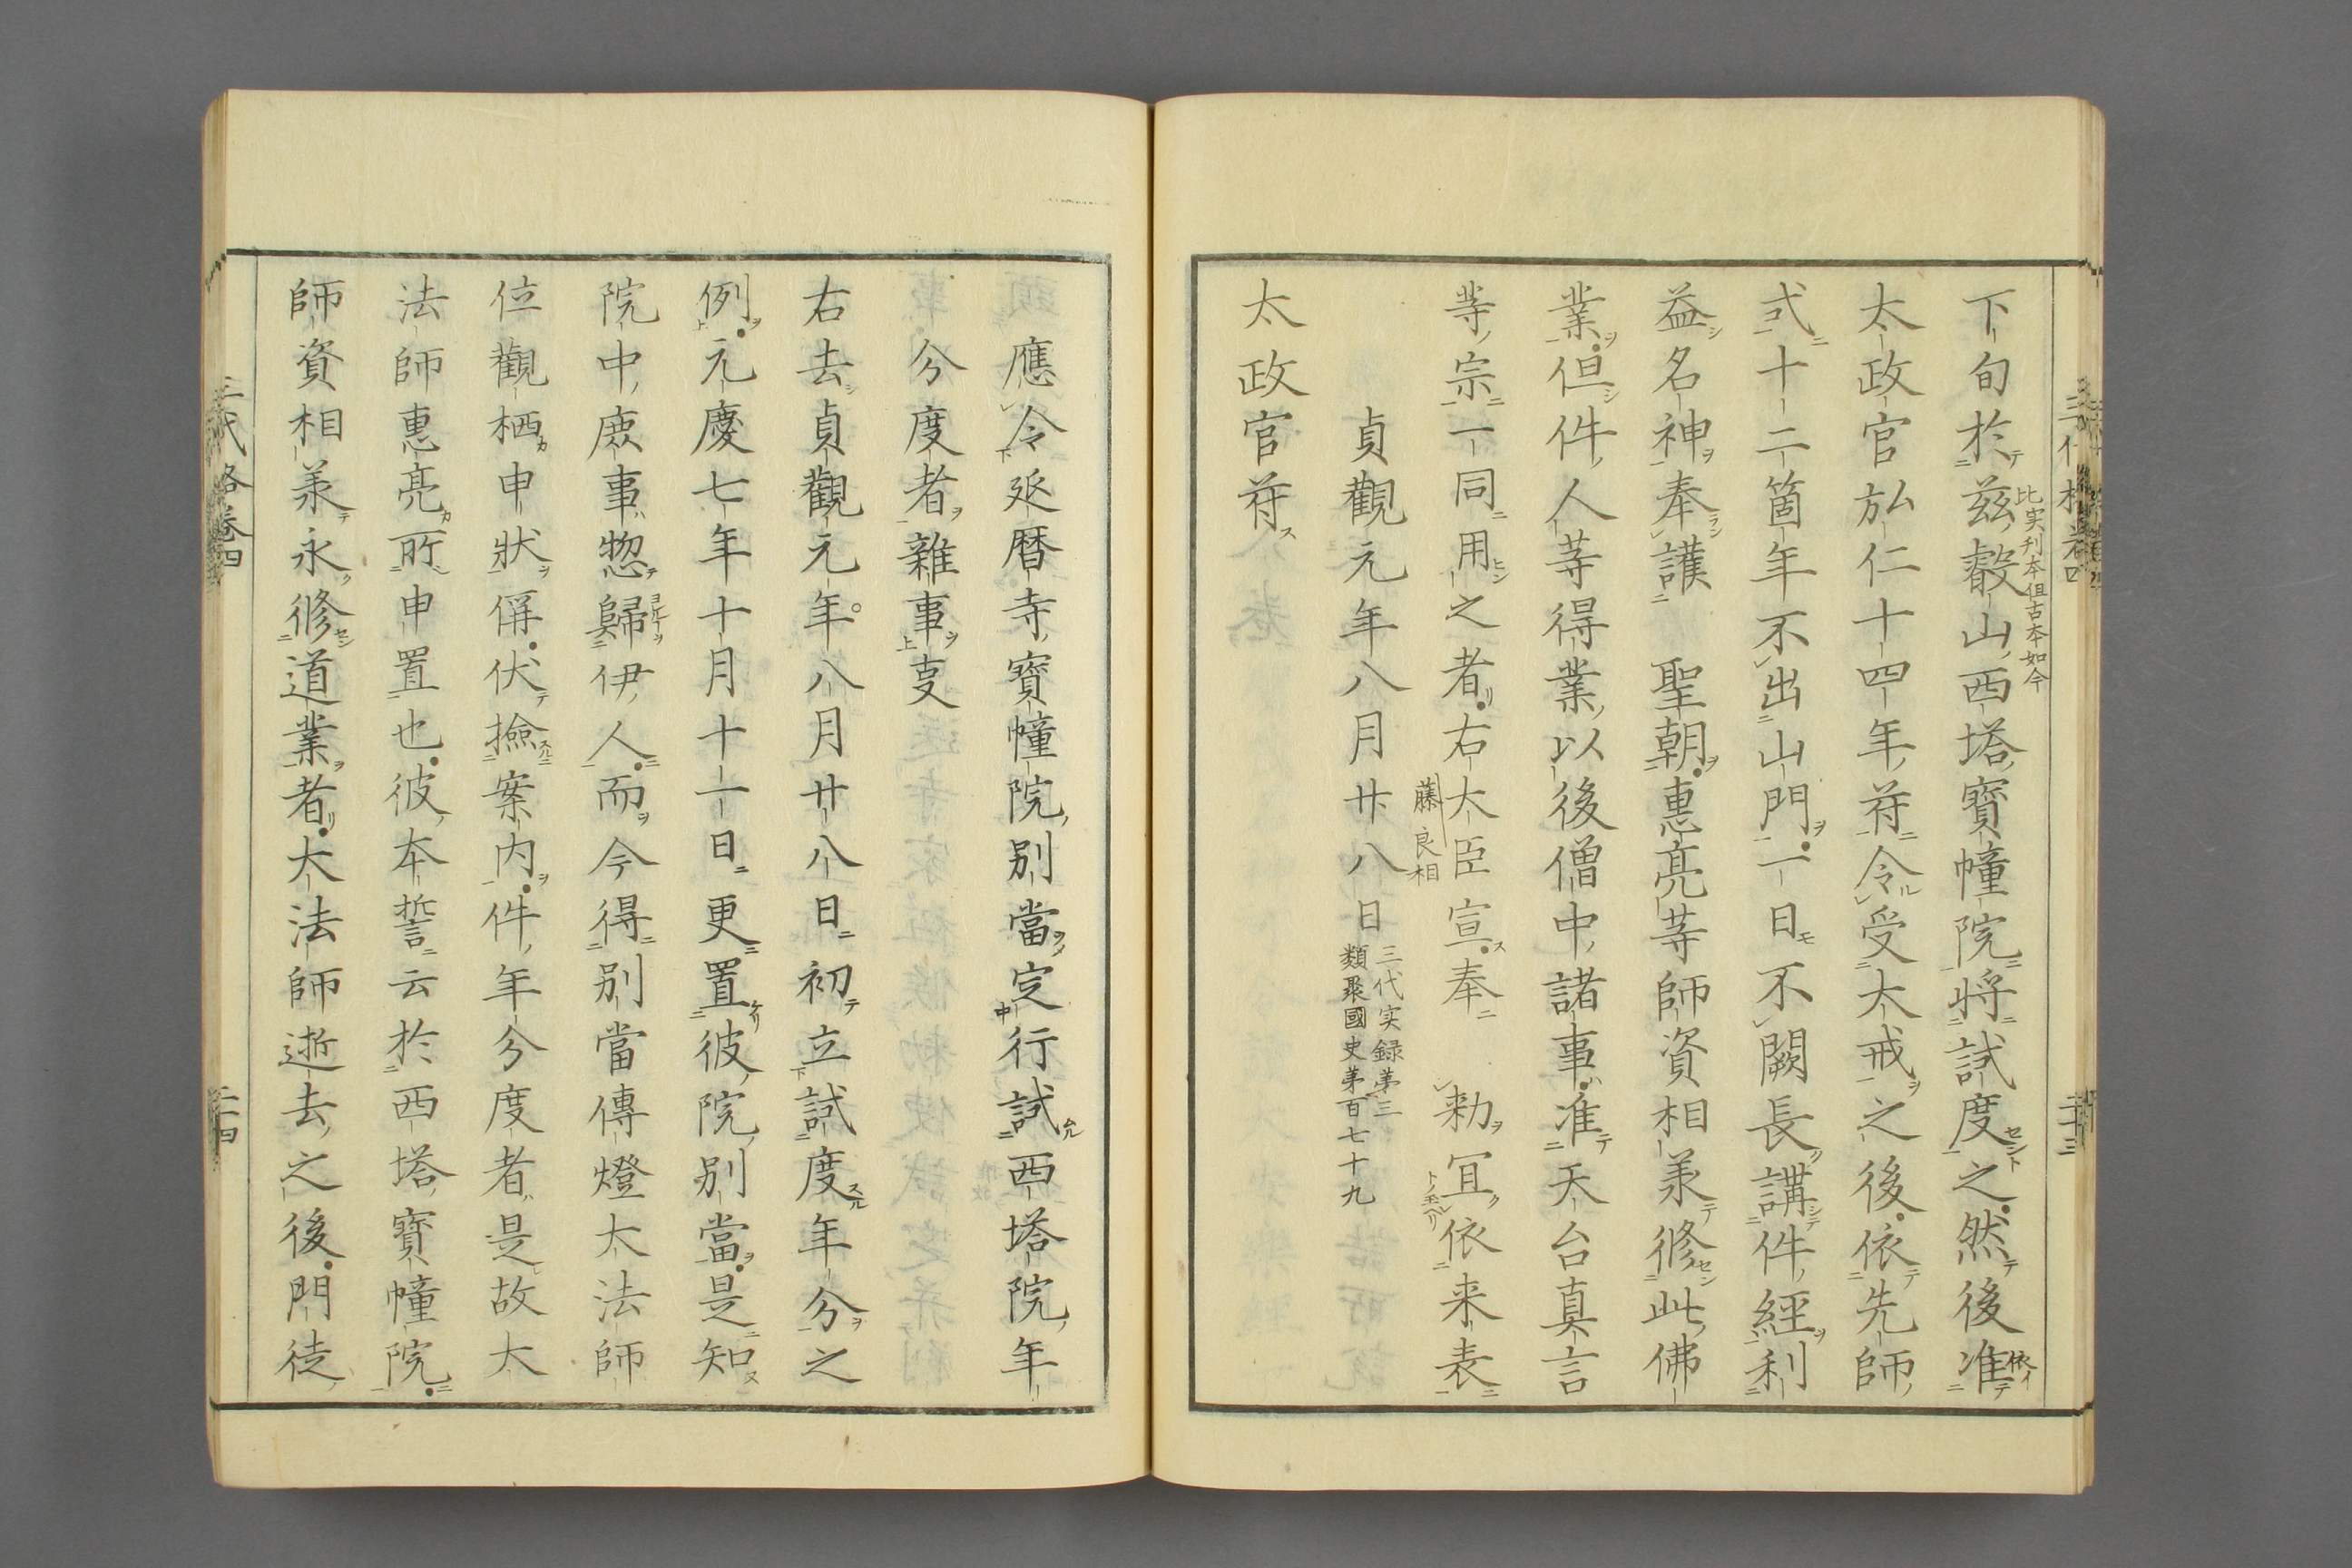 下旬於茲叡山西塔寶幢院将試度之然後准
比実刋本但古本如今
依イ
太政官弘仁十四年苻令受大戒之後依先師
式十二箇年不出山門一日不闕長講件經利
益名神奉護 聖朝惠亮䓁師資相羕修此佛
業但件人䓁得業以後僧中諸事准天台真言
䓁宗一同用之者右大臣宣奉 勅冝依来表
藤良相
貞觀元年八月廿八日
三代実録苐三
類聚國史苐百七十九
太政官苻
應令延暦寺寶幢院別當定行試西塔院年
分度者雜事㕝
右去貞觀元年八月廿八日初立試度年分之
例元慶七年十月十一日更置彼院別當是知
院中庶事惣歸伊人而今得別當傳燈大法師
位觀栖申狀偁伏撿案内件年分度者是故大
法師惠亮所申置也彼本誓云於西塔寶幢院
師資相羕永修道業者大法師逝去之後門徒